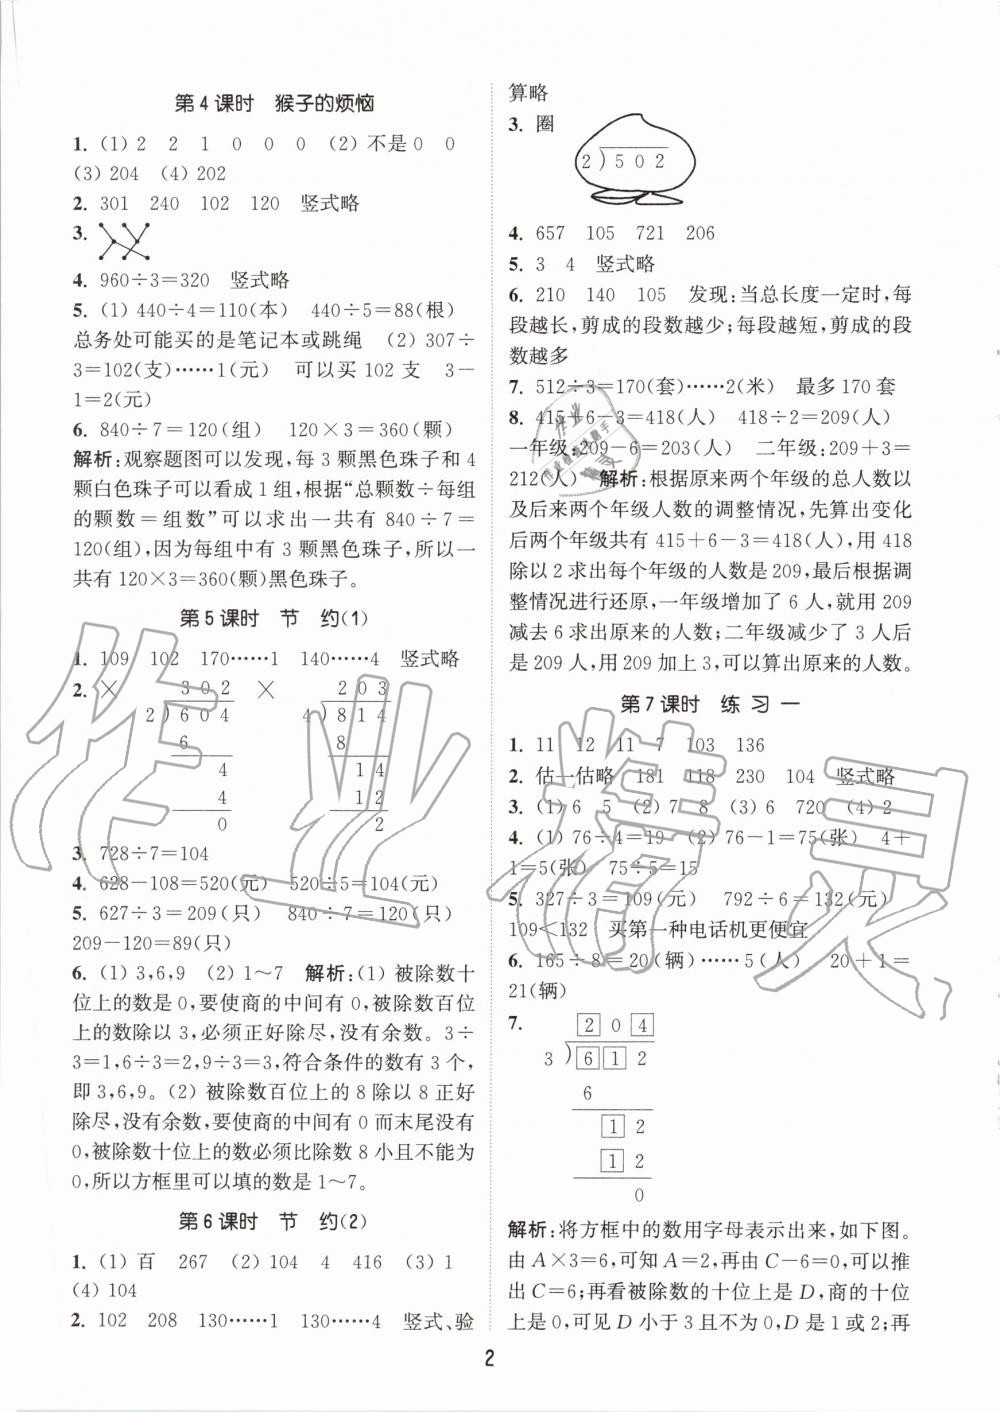 第4课时 猴子的烦恼
1. (1) 2 2 1 0 0 0 (2) 不是0 0
(3) 204 (4) 202
2. 301 240 102 120 竖式略
3.
4. 960÷3=320 竖式略
5. (1) 440÷4=110(本) 440÷5=88(根)
总务处可能买的是笔记本或跳绳 (2) 307÷
3=102(支)……1(元) 可以买102支 3-
1=2(元)
6. 840÷7=120(组) 120×3=360(颗)
解析:观察题图可以发现,每3颗黑色珠子和4
颗白色珠子可以看成1组,根据“总颗数÷每组
的颗数=组数”可以求出一共有840÷7=
120(组),因为每组中有3颗黑色珠子,所以一
共有120×3=360(颗)黑色珠子。
第5课时 节 约(1)
1. 109 102 170……1 140……4 竖式略
2. × 302 × 203
2)604 4)814
6 8
4 14
4 12
0 2
3. 728÷7=104
4. 628-108=520(元) 520÷5=104(元)
5. 627÷3=209(只) 840÷7=120(只)
209-120=89(只)
6. (1) 3,6,9 (2) 1~7 解析:(1) 被除数十
位上的数是0,要使商的中间有0,被除数百位
上的数除以3,必须正好除尽,没有余数。3÷
3=1,6÷3=2,9÷3=3,符合条件的数有3个,
即3,6,9。(2) 被除数百位上的8除以8正好
除尽,没有余数,要使商的中间有0而末尾没有
0,被除数十位上的数必须比除数8小且不能为
0,所以方框里可以填的数是1~7。
第6课时 节 约(2)
1. (1) 百 267 (2) 104 4 416 (3) 1
(4) 104
2. 102 208 130……1 130……4 竖式、验
算略
3. 圈
2)502
4. 657 105 721 206
5. 3 4 竖式略
6. 210 140 105 发现:当总长度一定时,每
段越长,剪成的段数越少;每段越短,剪成的段
数越多
7. 512÷3=170(套)……2(米) 最多170套
8. 415+6-3=418(人) 418÷2=209(人)
一年级:209-6=203(人) 二年级:209+3=
212(人) 解析:根据原来两个年级的总人数以
及后来两个年级人数的调整情况,先算出变化
后两个年级共有415+6-3=418(人),用418
除以2求出每个年级的人数是209,最后根据调
整情况进行还原,一年级增加了6人,就用209
减去6求出原来的人数;二年级减少了3人后
是209人,用209加上3,可以算出原来的人数。
第7课时 练 习 一
1. 11 12 11 7 103 136
2. 估一估略 181 118 230 104 竖式略
3. (1) 6 5 (2) 7 8 (3) 6 720 (4) 2
4. (1) 76÷4=19 (2) 76-1=75(张) 4+
1=5(张) 75÷5=15
5. 327÷3=109(元) 792÷6=132(元)
109<132 买第一种电话机更便宜
6. 165÷8=20(辆)……5(人) 20+1=
21(辆)
7. 204
3)612
6
12
12
0
解析:将方框中的数用字母表示出来,如下图。
由A×3=6,可知A=2,再由C-6=0,可以推
出C=6;再看被除数的十位上是D,商的十位
上是0,可见D小于3且不为0,D是1或2;再
2
作业精灵